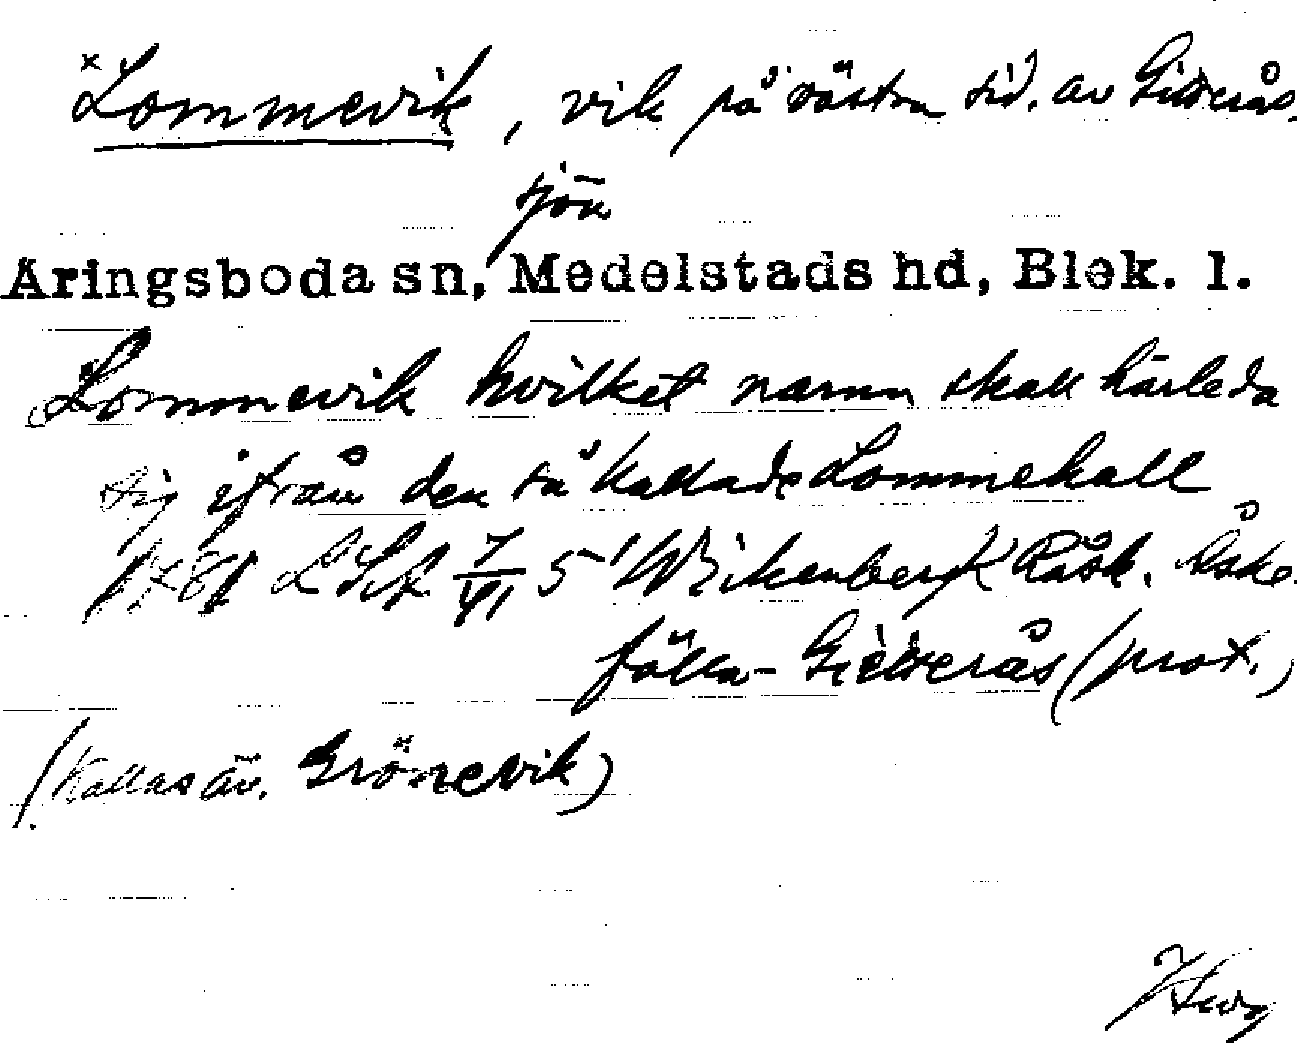 x Lommevik, vik på västra sid. av Giererås-
sjön
Aringsboda sn, Medelstads hd, Blek. l.
Lommevik hvilket namn skall härleda
sig ifrån den så kallade Lommehall
1781 LSA 7/VI 5
fälla- (prot.)
(Kallas äv. Grönevik)